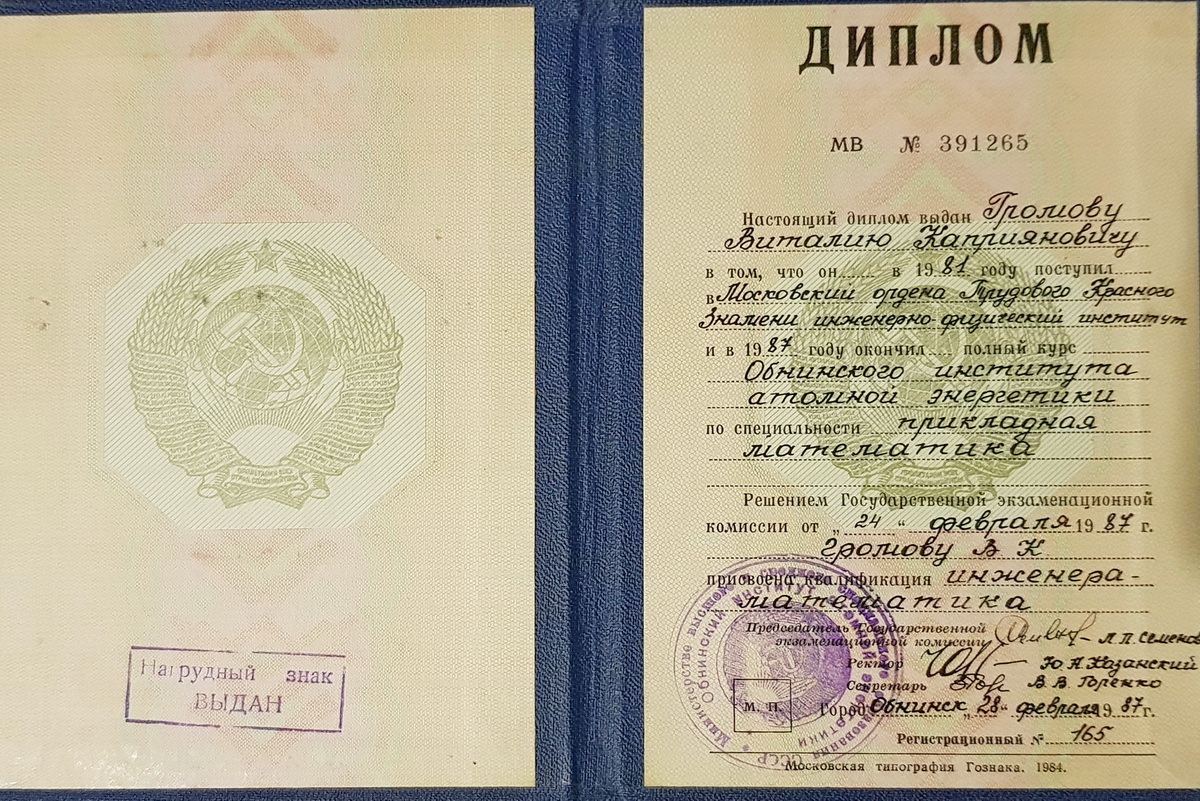 Нагрудный знак
ВЫДАН
ДИПЛОМ
МВ № 391265
Настоящий диплом выдан Громову
Виталию Каприяновичу
в том, что он в 1981 году поступил
в Московский ордена Трудового Красного
Знамени инженерно-физический институт
и в 1987 году окончил полный курс
Обнинского института
атомной энергетики
по специальности прикладная
математика
Решением Государственной экзаменационной
комиссии от „24“ февраля 1987 г.
Громову В К
присвоена квалификация инженера-
математика
Председатель Государственной
экзаменационной комиссии Л.П. Семенов
Ректор Ю А Казанский
Секретарь В. В. Горенко
М. П.
Город Обнинск „28“ февраля 1987 г.
Регистрационный № 165
Московская типография Гознака. 1984.